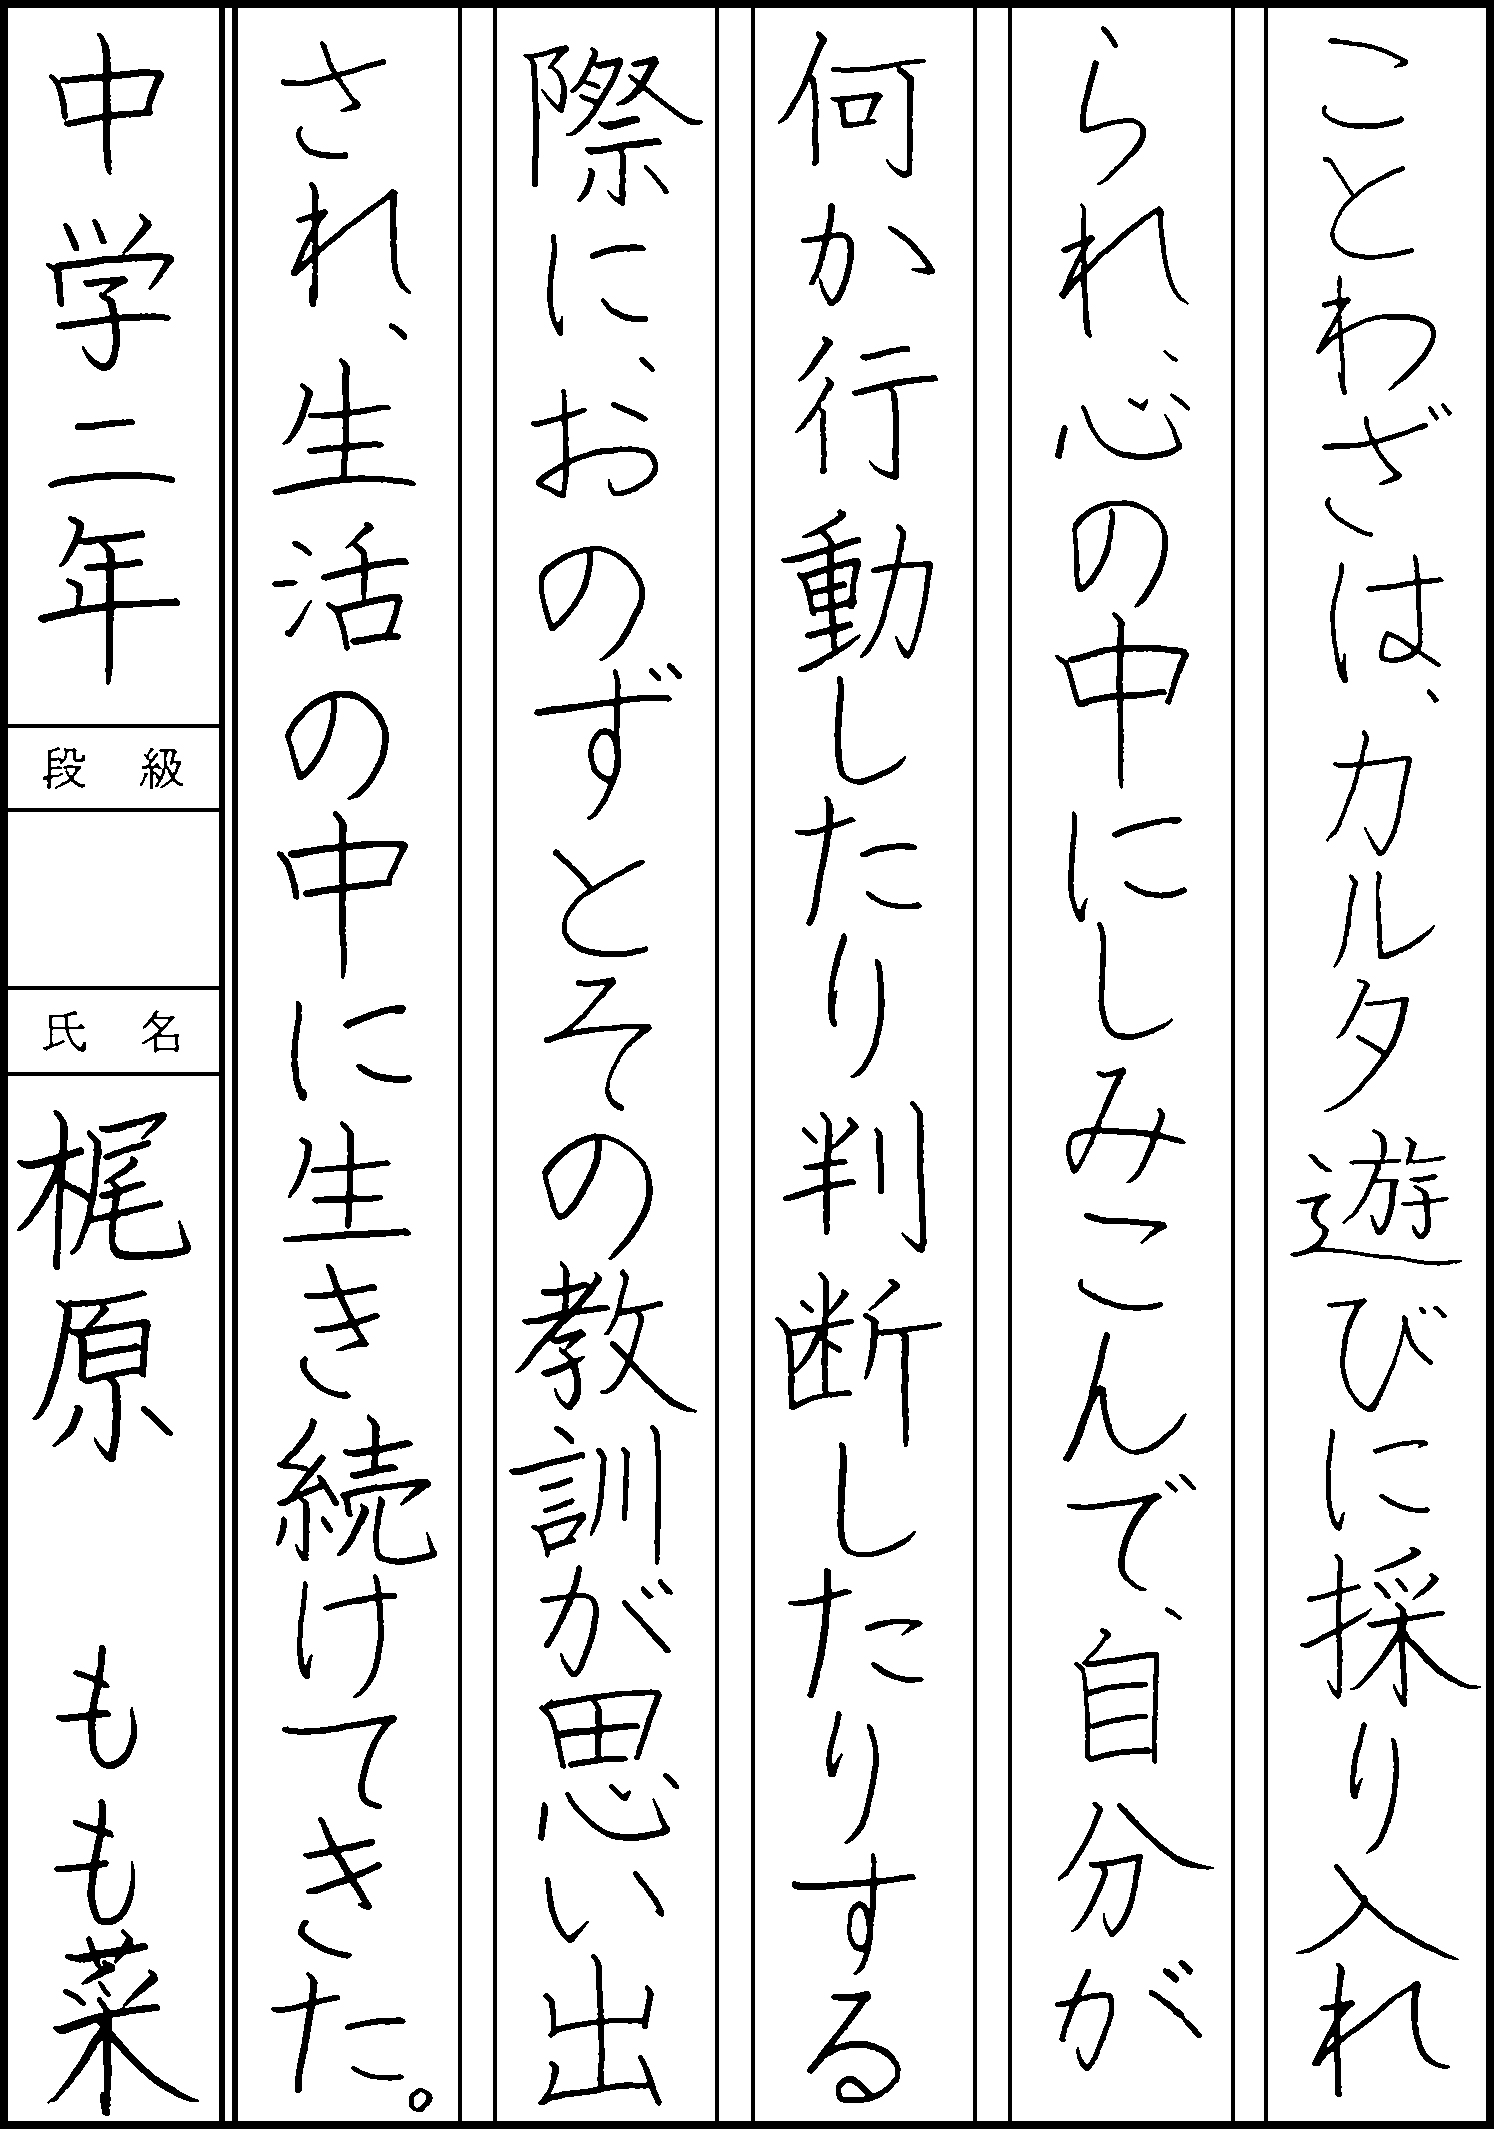 ことわざは、カルタ遊びに採り入れ
られ、心の中にしみこんで、自分が
何か行動したり判断したりする
際に、おのずとその教訓が思い出
され、生活の中に生き続けてきた。
中学二年
段級
氏名
梶原 もも菜